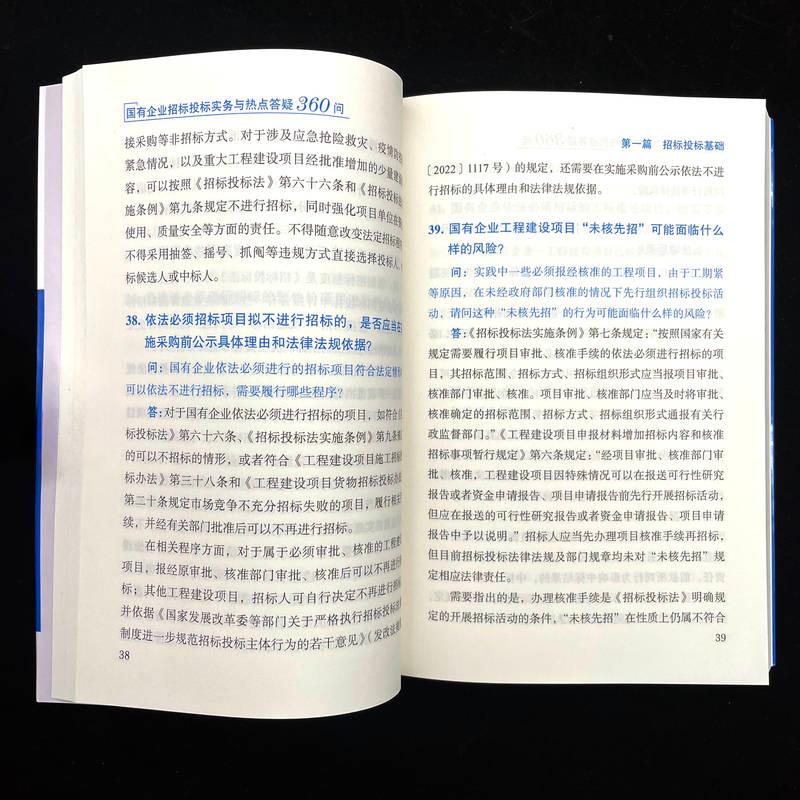 国有企业招标投标实务与热点答疑360问
接采购等非招标方式。对于涉及应急抢险救灾、疫情防
紧急情况，以及重大工程建设项目经批准增加的少量建
容，可以按照《招标投标法》第六十六条和《招标投标
施条例》第九条规定不进行招标，同时强化项目单位在
使用、质量安全等方面的责任。不得随意改变法定招标
不得采用抽签、摇号、抓阄等违规方式直接选择投标人、
标候选人或中标人。
38. 依法必须招标项目拟不进行招标的，是否应当在
施采购前公示具体理由和法律法规依据？
问：国有企业依法必须进行的招标项目符合法定情
可以依法不进行招标，需要履行哪些程序？
答：对于国有企业依法必须进行招标的项目，如符合
投标法》第六十六条、《招标投标法实施条例》第九条
的可以不招标的情形，或者符合《工程建设项目施工招
标办法》第三十八条和《工程建设项目货物招标投标办
第二十条规定市场竞争不充分招标失败的项目，履行相关
续，并经有关部门批准后可以不再进行招标。
在相关程序方面，对于属于必须审批、核准的工程
项目，报经原审批、核准部门审批、核准后可以不再进行
标；其他工程建设项目，招标人可自行决定不再进行
并依据《国家发展改革委等部门关于严格执行招标投标
制度进一步规范招标投标主体行为的若干意见》（发改法
38
第一篇 招标投标基础
〔2022〕1117 号）的规定，还需要在实施采购前公示依法不进
行招标的具体理由和法律法规依据。
39. 国有企业工程建设项目“未核先招”可能面临什么
样的风险？
问：实践中一些必须报经核准的工程项目，由于工期紧
等原因，在未经政府部门核准的情况下先行组织招标投标活
动，请问这种“未核先招”的行为可能面临什么样的风险？
答：《招标投标法实施条例》第七条规定：“按照国家有关
规定需要履行项目审批、核准手续的依法必须进行招标的项
目，其招标范围、招标方式、招标组织形式应当报项目审批、
核准部门审批、核准。项目审批、核准部门应当及时将审批、
核准确定的招标范围、招标方式、招标组织形式通报有关行
政监督部门。”《工程建设项目申报材料增加招标内容和核准
招标事项暂行规定》第六条规定：“经项目审批、核准部门审
批、核准，工程建设项目因特殊情况可以在报送可行性研究
报告或者资金申请报告、项目申请报告前先行开展招标活动，
但应在报送的可行性研究报告或者资金申请报告、项目申请
报告中予以说明。”招标人应当先办理项目核准手续再招标，
但目前招标投标法律法规及部门规章均未对“未核先招”规
定相应法律责任。
需要指出的是，办理核准手续是《招标投标法》明确规
定的开展招标活动的条件，“未核先招”在性质上仍属不符合
39